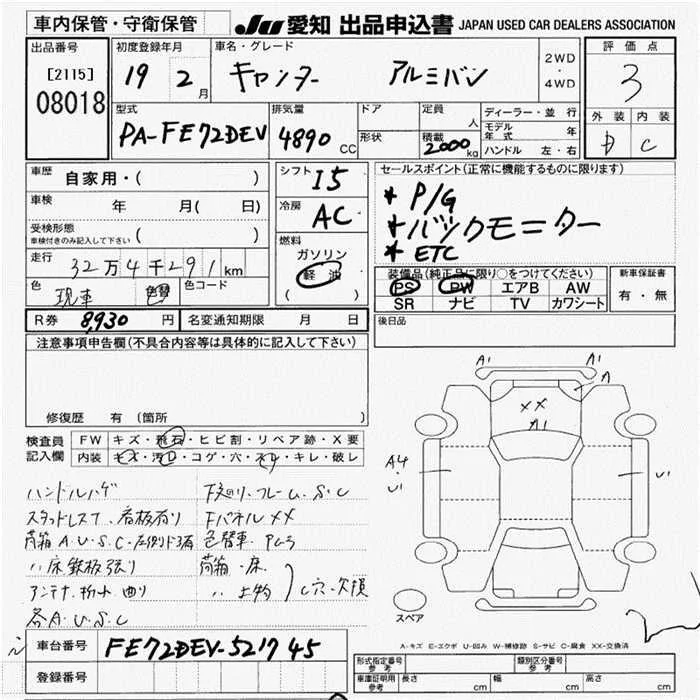 車内保管・守衛保管
JU 愛知 出品申込書 JAPAN USED CAR DEALERS ASSOCIATION
出品番号
[2115]
08018
初度登録年月
19 2月
車名・グレード
キャンター アルミバン
2WD
・
4WD
評価点
3
外装 内装
D C
型式
PA-FE72DEV
排気量
4890 CC
ドア
形状
定員 人
積載 2000 kg
ディーラー・並行
モデル年式 年
ハンドル 左・右
車歴 自家用・( )
車検 年 月( 日)
受検形態
車検付きのみ記入して下さい ( )
走行 32万4千291 km
色 現車 色替 色コード
シフト I5
冷房 AC
燃料
ガソリン
軽油
( )
セールスポイント(正常に機能するものに限ります)
* P/G
* バックモニター
* ETC
装備品(純正品に限り○をつけてください)
PS PW エアB AW
SR ナビ TV カワシート
新車保証書
有・無
R券 8,930 円 名変通知期限 月 日
後日品
注意事項申告欄(不具合内容等は具体的に記入して下さい)
修復歴 有(箇所 )
検査員記入欄
FW キズ・飛石・ヒビ割・リペア跡・X要
内装 キズ・汚レ・コゲ・穴・スレ・キレ・破レ
ハンドルハゲ
スタッドレスT.看板有り
荷箱A.U.S.C
〃床鉄板張り
アンテナ 折れ 曲り
各A.U.S.C
下廻り.フレーム.S.C
FパネルXX
色替車
荷箱.床
〃 上物
C穴・欠損
A1 A1
A
XX
A1
A4
U1
U1
スペア
A-キズ E-エクボ U-凹み W-補修跡 S-サビ C-腐食 XX-交換済
車台番号 FE72DEV-521745
登録番号
形式指定番号 参考
類別区分番号 参考
車庫証明用 参考 長さ cm 幅 cm 高さ cm